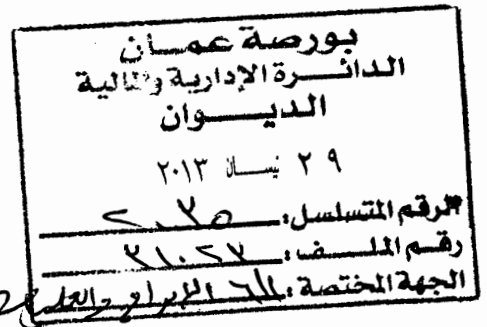 بورصة عمان
الدائرة الإدارية والمالية
الديوان
٢٩ نيسان ٢٠١٣
الرقم المتسلسل:
رقم الملف: ٣١٠٢٧
الجهة المختصة: